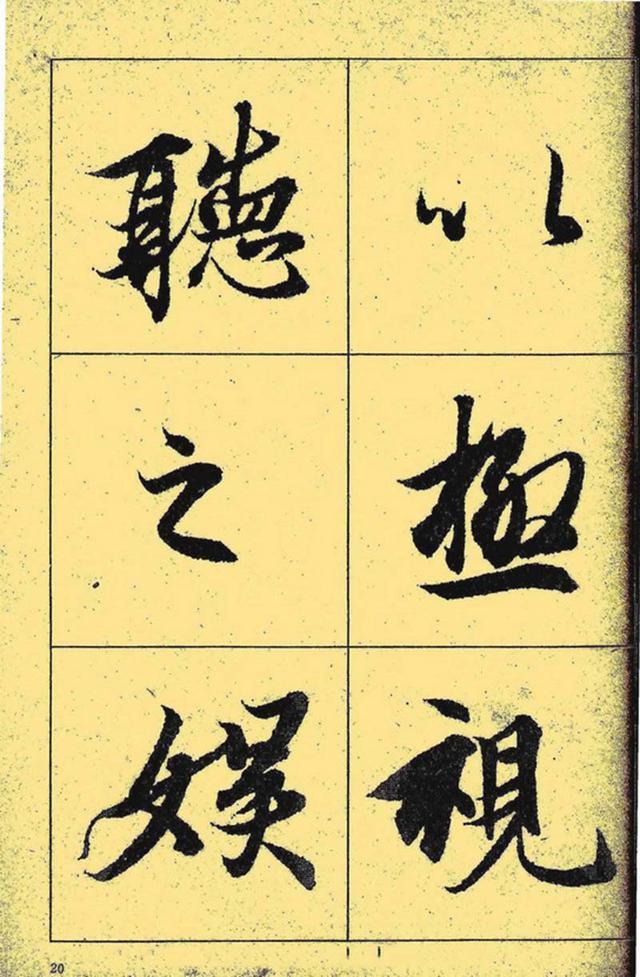 以極視
聽之娱
20